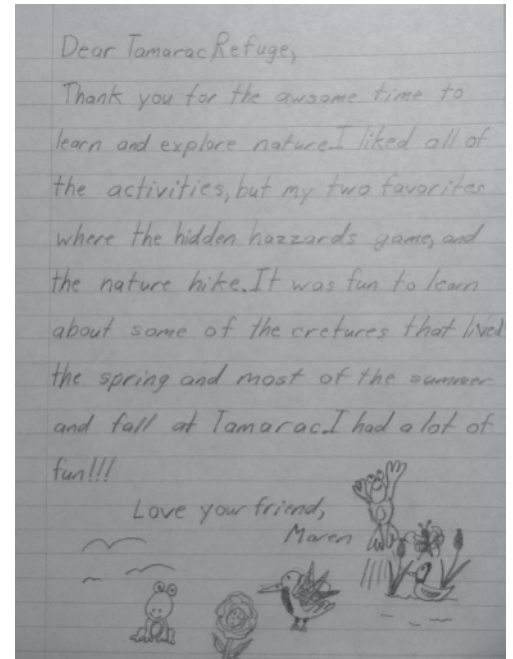 Dear Tamarac Refuge,
Thank you for the awsome time to
learn and explore nature.I liked all of
the activities, but my two favorites
where the hidden hazzards game, and
the nature hike. It was fun to learn
about some of the cretures that lived
the spring and most of the summer
and fall at Tamarac.I had a lot of
fun!!!
Love your friend,
Maren